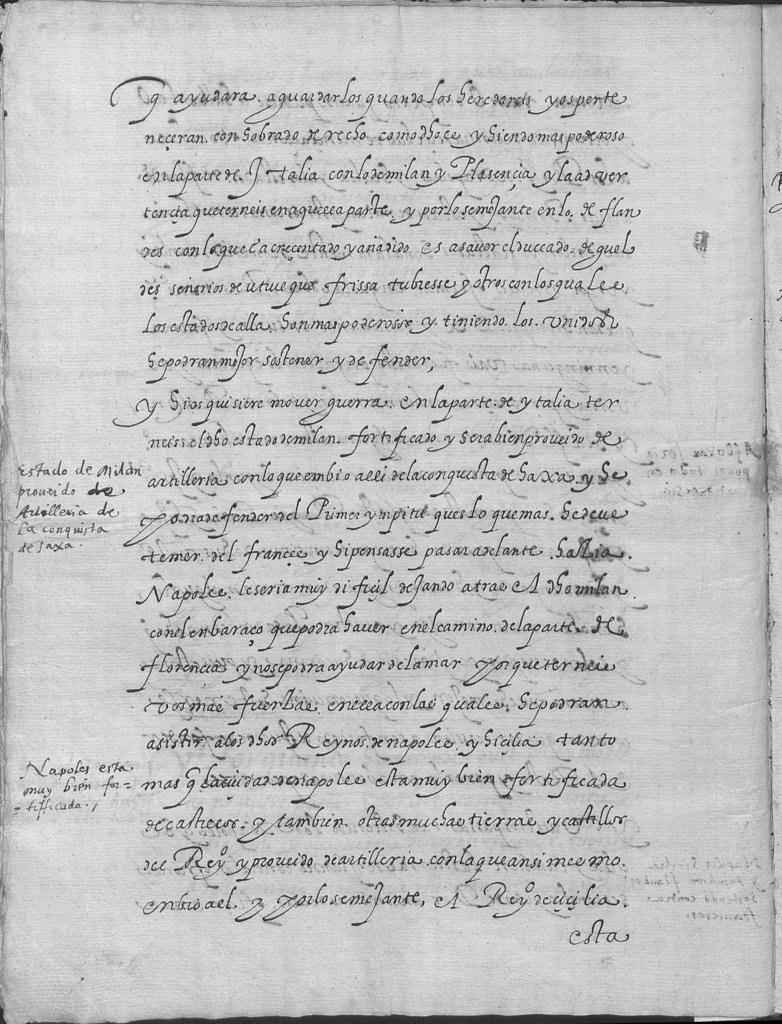 q̃ ayudara. a guardarlos quando los heredareis y os perte
neçeran. con sobrado derecho como dho e y siendo mas poderoso
en la parte de. Italia con lo de milan y Plasençia y la adver
tençia que terneis en aquella parte, y por lo semejante en lo. de flan
des con lo que e acreçentado y añadido es a saver el duccado. de guel
des señorios de utrique frissa tubiesse y otros con los quales.
los estados de alla. son mas poderosos y tiniendo. los. unidos
se podran mejor sostener y defender,
y si os quisiere mover guerra. en la parte. de ytalia ter
neis. el dho estado de milan. fortificado y sera bien proveido de
artilleria con lo que embio alli de la conquista de saxa. y se
podra defender del Primer ympitu ques lo que mas. se deve
temer. del françes y si pensasse pasar adelante. hasta.
Napoles. le seria muy difiçil dejando atras el dho milan.
con el enbaraço que podra haver en el camino. de la parte. de
florencia y no se podra ayudar de la mar porque terneis
vos mas fuerças. en ella con las quales. se podran.
asistir a los dhos Reynos. de napoles. y siçilia tanto
mas q̃ la çiudad de napoles esta muy bien fortificada
de castillos. y tambien otras muchas tierras y castillos
del Reyº y proveido de artilleria. con la que ansimesmo.
enbio a el y por lo semejante, el Reyº de çiçilia.
esta
Estado de Milan
proueido de
Artilleria de
la conquista
de saxa.
Napoles esta
muy bien for-
-tifficada.,